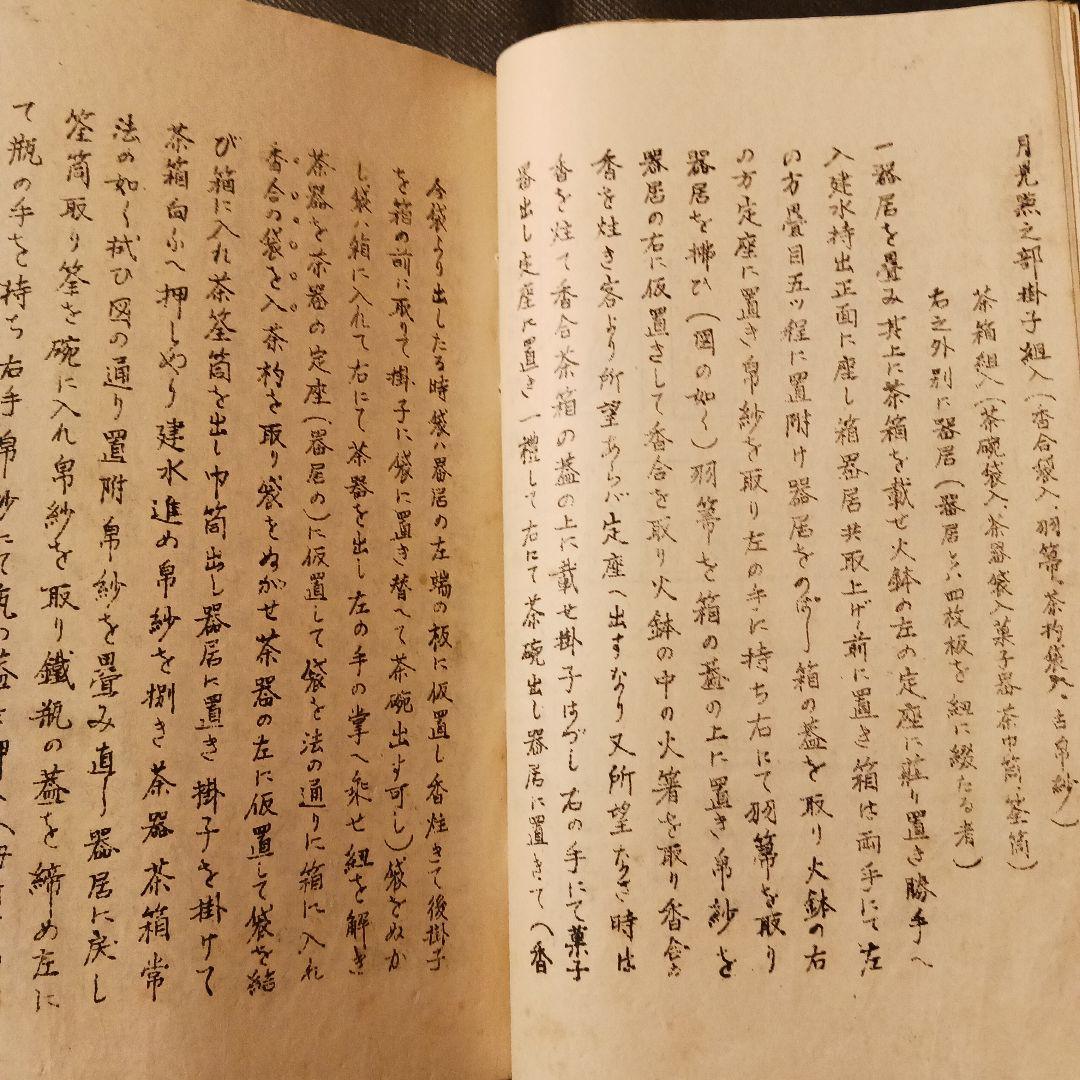 月見点之部掛子組入（香合袋入、羽箒、茶杓袋入、古帛紗）
茶箱組入（茶碗袋入、茶器袋入菓子器茶巾筒、筌筒）
右之外別に器居（器居とハ四枚板を紐に綴たる者）
一器居を畳み其上に茶箱を載せ火鉢の左の定座に莊り置き勝手へ
入建水持出正面に座し箱器居共取上げ前に置き箱は両手にて左
の方畳目五ッ程に置附け器居をのばし箱の蓋を取り火鉢の右
の方定座に置き帛紗を取り左の手に持ち右にて羽箒を取り
器居を拂ひ（図の如く）羽箒を箱の蓋の上に置き帛紗を
器居の右に仮置きして香合を取り火鉢の中の火箸を取り香合
香を炷き客より所望あらバ定座へ出すなり又所望なき時は
香を炷て香合茶箱の蓋の上に載せ掛子はづし右の手にて菓子
器出し定座に置き一禮して右にて茶碗出し器居に置きて（香
合袋より出したる時袋ハ器居の左端の板に仮置し香炷きて後掛子
を箱の前に取りて掛子に袋に置き替へて茶碗出す可し）袋をぬか
し袋ハ箱に入れて右にて茶器を出し左の手の掌へ乗せ紐を解き
茶器を茶器の定座（器居の）に仮置して袋を法の通りに箱に入れ
香合の袋を入茶杓を取り袋をぬがせ茶器の左に仮置して袋を結
び箱に入れ茶筌筒を出し巾筒出し器居に置き掛子を掛けて
茶箱向ふへ押しやり建水進め帛紗を捌き茶器茶箱常
法の如く拭ひ図の通り置附帛紗を畳み直し器居に戻し
筌筒取り筌を碗に入れ帛紗を取り鐵瓶の蓋を締め左に
て瓶の手を持ち右手帛紗にて瓶の蓋を押へ